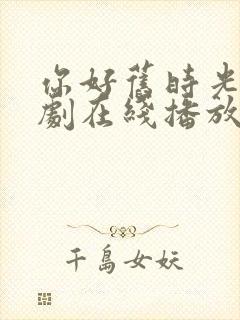 你好舊時光
劇在綫播放
千島女妖